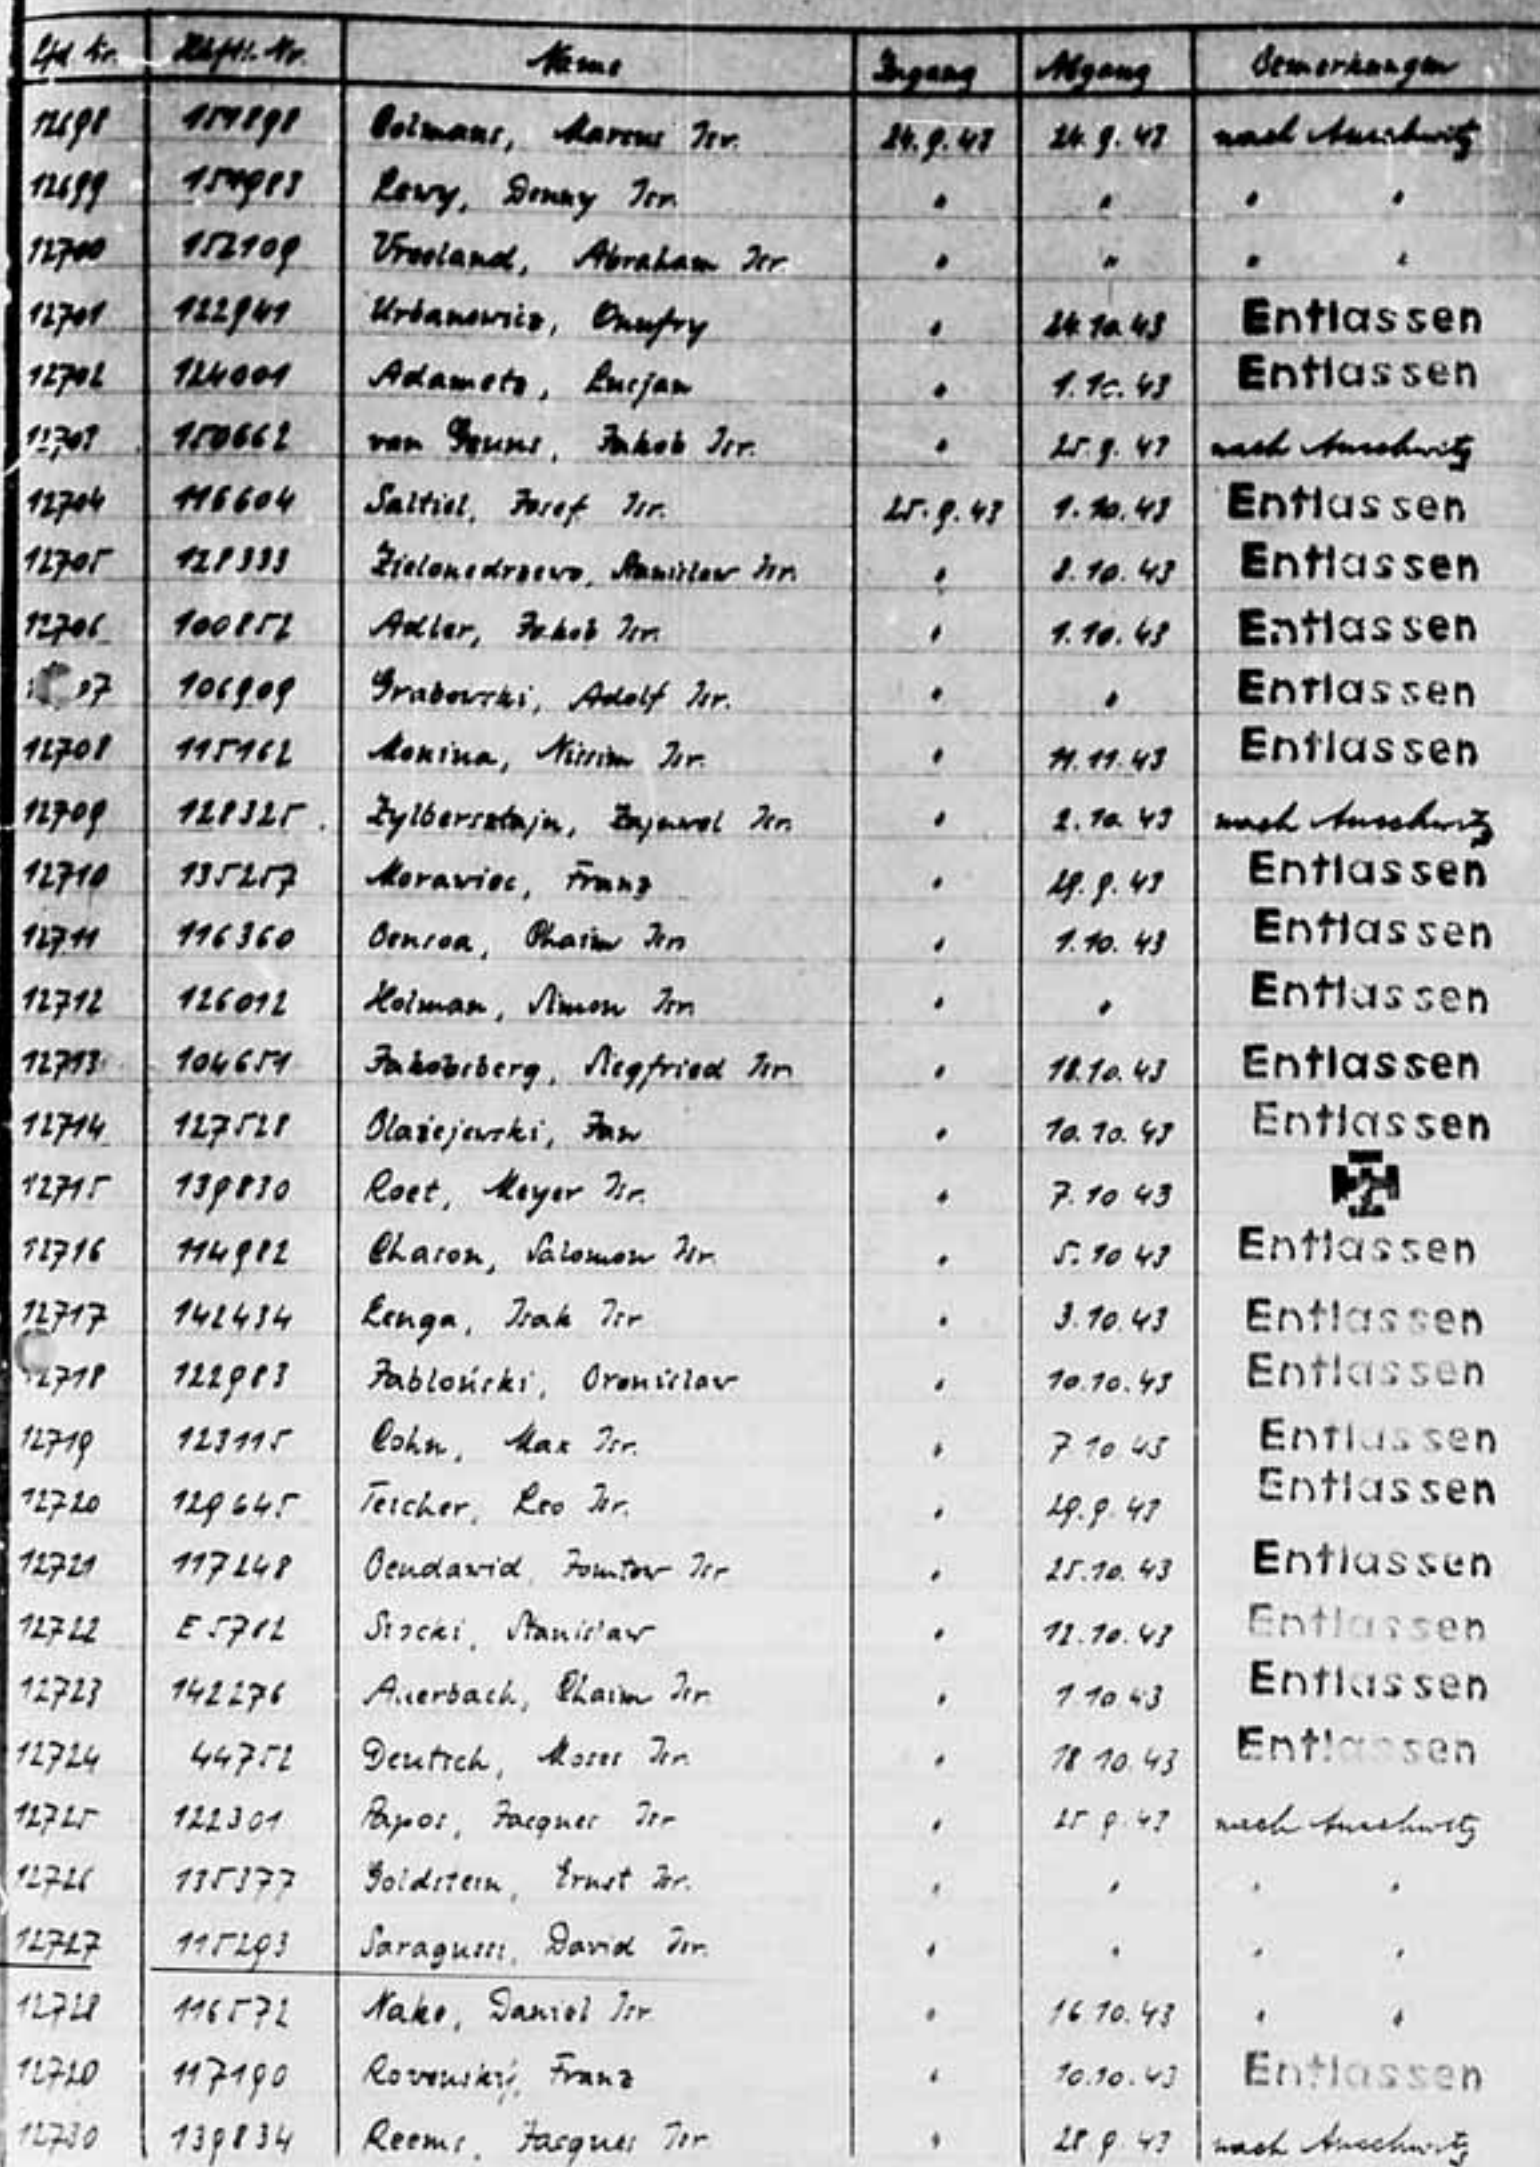 Lfd Nr. Häftl. Nr. Name Zugang Abgang Bemerkungen
12698 151898 Colmans, Marcus Isr. 24.9.43 24.9.43 nach Auschwitz
12699 150983 Lewy, Denny Isr. " " " "
12700 152109 Vreeland, Abraham Isr. " " " "
12701 122941 Urbanowicz, Onufry " 24.10.43 Entlassen
12702 124001 Adametz, Lucjan " 1.10.43 Entlassen
12703 150662 van Isr. " 25.9.43 nach Auschwitz
12704 116604 Saltiel, Josef Isr. 25.9.43 1.10.43 Entlassen
12705 128333 Zielonedrzewo, Stanislaw Isr. " 8.10.43 Entlassen
12706 100852 Adler, Jakob Isr. " 1.10.43 Entlassen
07 106909 Grabowski, Adolf Isr. " " Entlassen
12708 115162 Monina, Nissim Isr. " 11.11.43 Entlassen
12709 128325 Zylbersztajn, Isr. " 2.10.43 nach Auschwitz
12710 135257 Morawiec, Franz " 29.9.43 Entlassen
12711 116360 Benroa, Chaim Isr. " 1.10.43 Entlassen
12712 126012 Holman, Simon Isr. " " Entlassen
12713 104651 Jakobsberg, Siegfried Isr. " 18.10.43 Entlassen
12714 127528 Blażejewski, Jan " 10.10.43 Entlassen
12715 139830 Roet, Meyer Isr. " 7.10.43
12716 114982 Chason, Salomon Isr. " 5.10.43 Entlassen
12717 142434 Lenga, Isak Isr. " 3.10.43 Entlassen
12718 122983 Jabloński, Bronislav " 10.10.43 Entlassen
12719 123115 Cohn, Max Isr. " 7.10.43 Entlassen
12720 129645 Teicher, Leo Isr. " 29.9.43 Entlassen
12721 117248 Bendawid, Jomtow Isr. " 25.10.43 Entlassen
12722 E 5712 Stanislaw " 12.10.43 Entlassen
12723 142276 Auerbach, Chaim Isr. " 1.10.43 Entlassen
12724 44752 Deutsch, Moses Isr. " 18.10.43 Entlassen
12725 122301 Papos, Jacques Isr " 25.9.43 nach Auschwitz
12726 135377 Goldstein, Ernst Isr. " " " "
12727 115293 Saragussi, David Isr. " " " "
12728 116572 Nake, Daniel Isr. " 16.10.43 " "
12729 117190 Rovenský, Franz " 10.10.43 Entlassen
12730 139834 Reems, Jacques Isr. " 28.9.43 nach Auschwitz